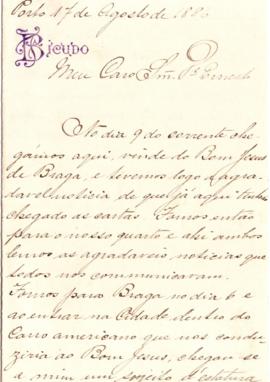 Porto 17 de Agosto de 18
BICUDO
Meu Caro Snr. Pe. Ernesto
No dia 9 do corrente che-
gámos aqui, vindo do Bom Jesus
de Braga, e tivemos logo a agra-
davel noticia de que já aqui tinham
chegado as cartas. Fomos então
para o nosso quarto e ahi ambos
lemos as agradaveis noticias que
todos nos communicaram.
Fomos para Braga no dia 6 e
ao entrar na Cidade dentro do
Carro americano que nos condu-
ziria ao Bom Jesus, chegou-se
a mim um sujeito d'estatura